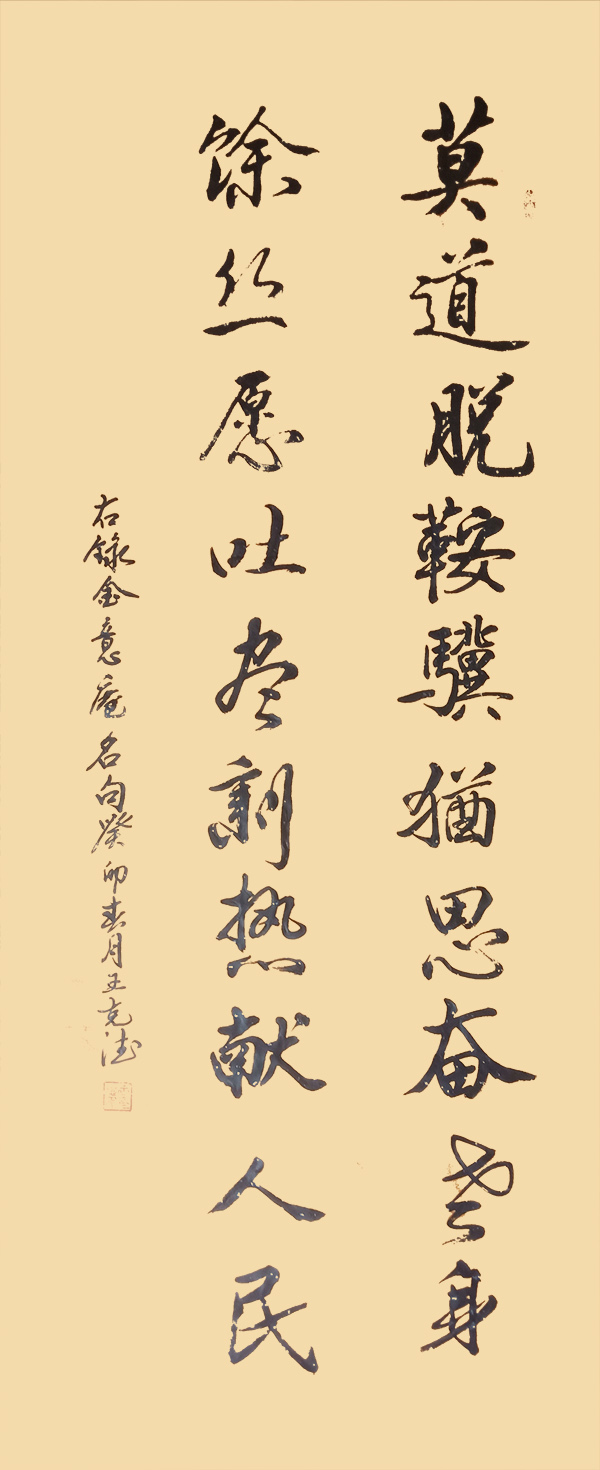 莫道脱鞍骥犹思奋老身
馀丝愿吐尽剩热献人民
右录金意庵名句癸卯春月王克法